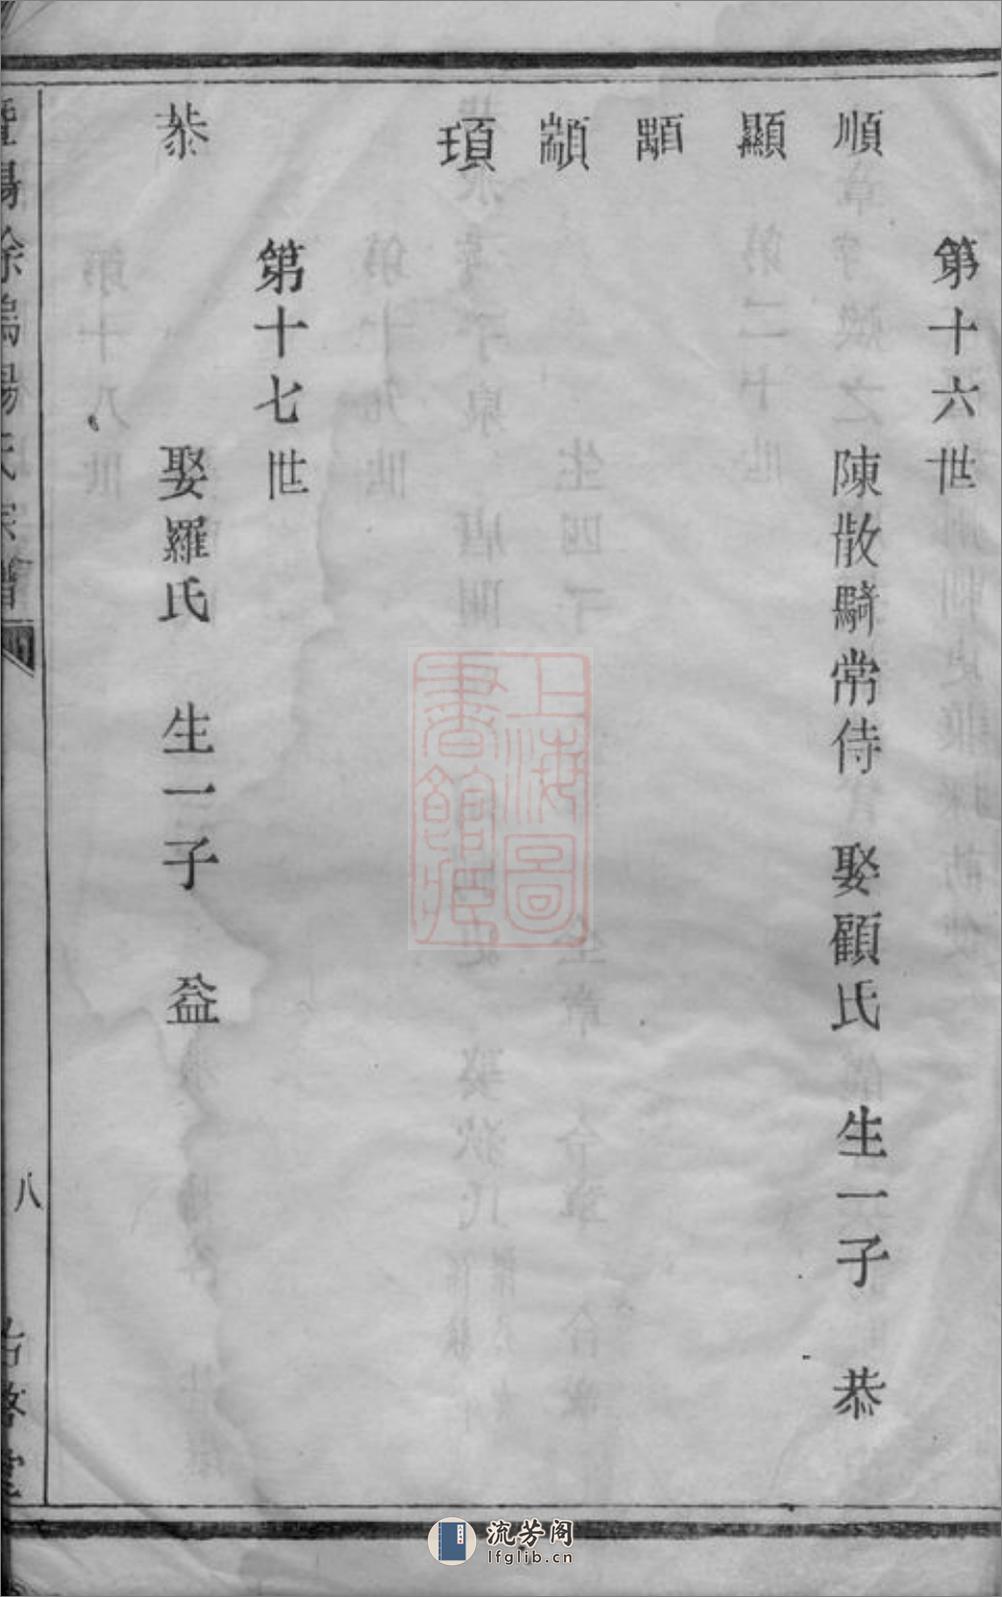 第十六世
順 陳散騎常侍 娶顧氏 生一子 恭
顯
顒
顓
頊
第十七世
恭 娶羅氏 生一子 益
暨陽徐耑楊氏宗譜
八
上海圖書館藏
流芳阁
lfglib.cn